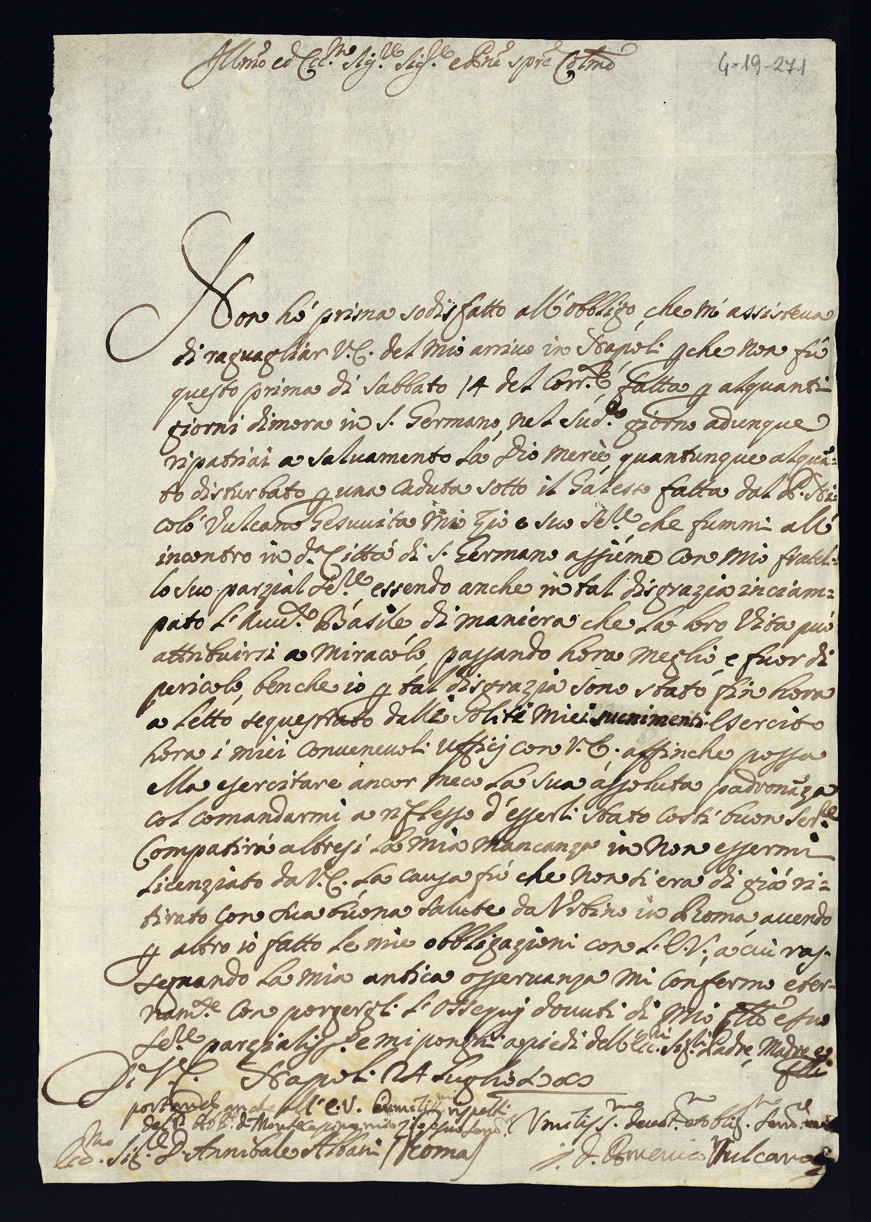 Illmo ed Ecc.mo Sig.re Sig.re e Pne spre Colmo
4-19-271
Non hò prima sodisfatto all'obbligo, che m'assisteva
di raguagliar V.E. del mio arrivo in Napoli pche non fù
questo prima di Sabbato 14 del Corr.te, fatta p alquanti
giorni dimora in S. Germano, nel sud.o giorno adunque
ripatriai a salvamento la Dio mercè quantunque alquā=
to disturbato p una caduta sotto il Galesse fatta dal P. Ni=
colò Vulcano Gesuvita mio Zio e suo Se.re, che fummi all'
incontro in d.a Città di S. Germano assieme con mio fratel=
lo suo parzial Se.re essendo anche in tal disgrazia inciam=
pato l' Basile di maniera che la loro vita può
attribuirsi a miracolo, passando hora meglio e fuor di
pericolo, benche io p tal disgrazia sono stato fin hora
a letto sequestrato dalli soliti miei Esercito
hora i miei convenevoli ufficij con V.E. affinche possa
ella esercitare ancor meco la sua assoluta padronāza
col comandarmi a riflesso d'esserli stato costì buon Ser.re
Compatirà altresì la mia mancanza in non essermi
licenziato da V.E. la causa fù che non si era di già ri=
tirato con sua buona salute da Urbino in Roma avendo
p altro io fatto le mie obbligazioni con L'E.V., a cui ras=
segnando la mia antica osservanza mi confermo eter=
nam.te con porgergli l'ossequij dovuti di mio fllo e suo
Se.re parzialiss.o e mi ponghi a piedi dell' Ecc.mi Sig.ri Padre, Madre e
flli
Di V.E. Napoli 24 Luglio
all'E.V. umiliss. rispetti
del P. Ab.e di Montecasino mio zio
Umiliss.mo devot.mo et obblig.mo
Ecc.mo Sig.re D. Annibale Albani (Roma)
D. Domenico Vulcano